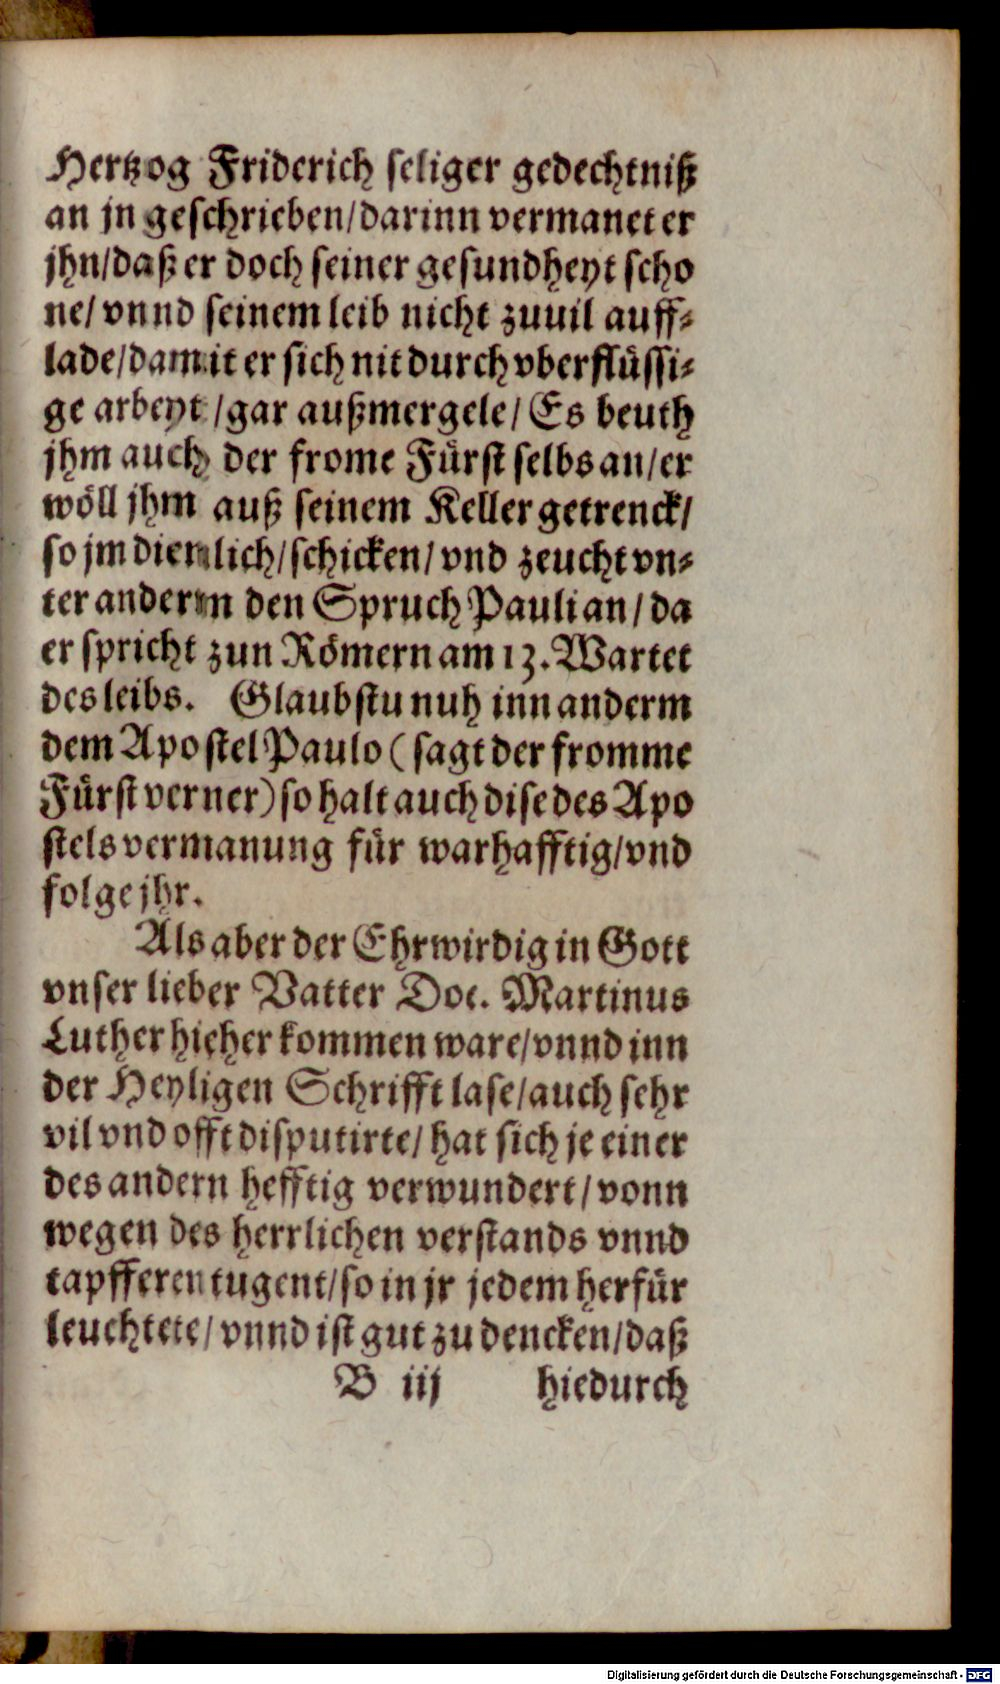 Hertzog Friderich seliger gedechtniß
an jn geschrieben/darinn vermanet er
jhn/daß er doch seiner gesundheyt scho
ne/ vnnd seinem leib nicht zuuil auff-
lade/damit er sich nit durch vberflüssi-
ge arbeyt/gar außmergele/ Es beuth
jhm auch der frome Fürst selbs an/er
wöll jhm auß seinem Keller getrenck/
so jm dienlich/schicken/vnd zeucht vn-
ter anderm den Spruch Pauli an/da
er spricht zun Römern am 13. Wartet
des leibs. Glaubstu nuh inn anderm
dem Apostel Paulo (sagt der fromme
Fürst verner) so halt auch dise des Apo
stels vermanung für warhafftig/vnd
folge jhr.
Als aber der Ehrwirdig in Gott
vnser lieber Vatter Doc. Martinus
Luther hieher kommen ware/vnnd inn
der Heyligen Schrifft lase/auch sehr
vil vnd offt disputirte/ hat sich je einer
des andern hefftig verwundert/vonn
wegen des herrlichen verstands vnnd
tapfferen tugent/so in jr jedem herfür
leuchtete/vnnd ist gut zu dencken/daß
B iij hiedurch
Digitalisierung gefördert durch die Deutsche Forschungsgemeinschaft - DFG